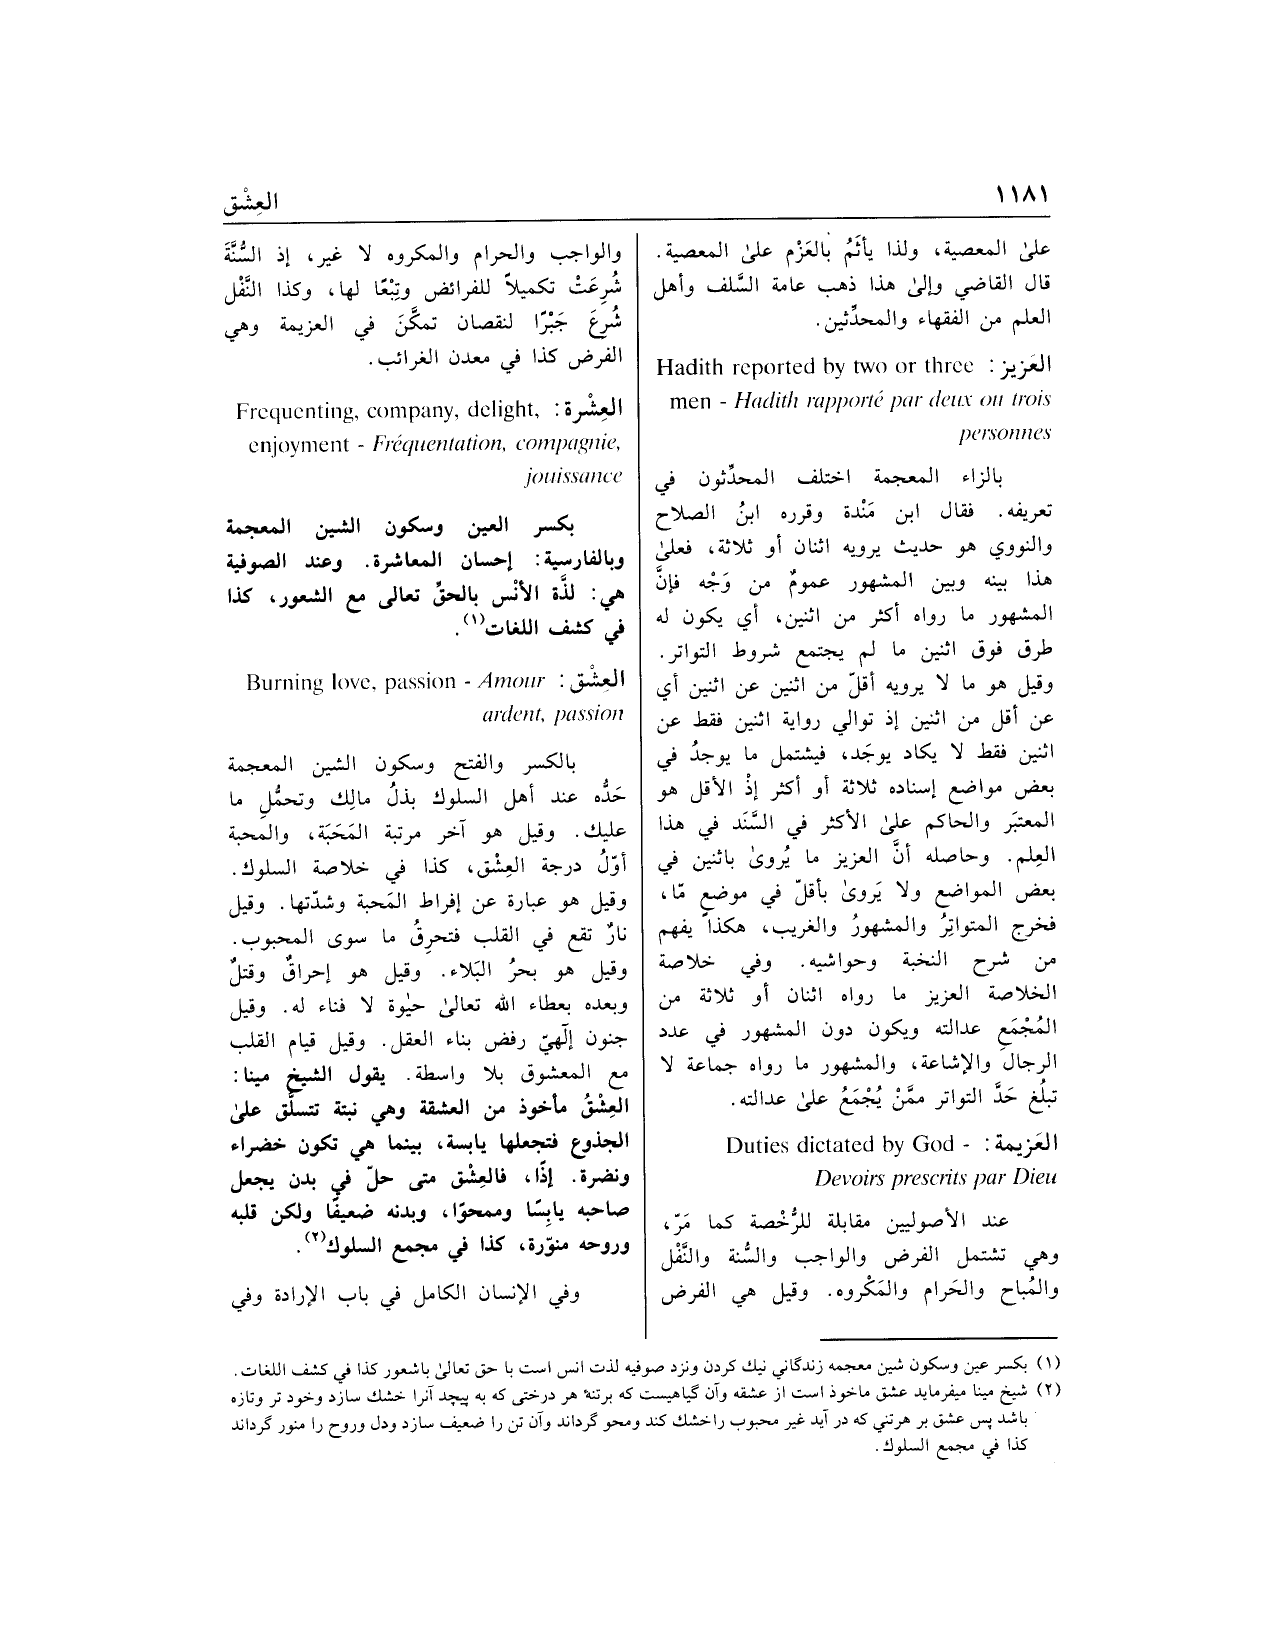 ١١٨١
العِشْق
علىٰ المعصية، ولذا يأثَمُ بالعَزْم علىٰ المعصية.
قال القاضي وإلىٰ هذا ذهب عامة السَّلف وأهل
العلم من الفقهاء والمحدِّثين.
العَزيز: Hadith reported by two or three
men - Hadith rapporté par deux ou trois
personnes
بالزاء المعجمة اختلف المحدِّثون في
تعريفه. فقال ابن مَنْدة وقرره ابنُ الصلاح
والنووي هو حديث يرويه اثنان أو ثلاثة، فعلىٰ
هذا بينه وبين المشهور عمومٌ من وَجْه فإنَّ
المشهور ما رواه أكثر من اثنين، أي يكون له
طرق فوق اثنين ما لم يجتمع شروط التواتر.
وقيل هو ما لا يرويه أقلّ من اثنين عن اثنين أي
عن أقل من اثنين إذ توالي رواية اثنين فقط عن
اثنين فقط لا يكاد يوجَد، فيشتمل ما يوجدُ في
بعض مواضع إسناده ثلاثة أو أكثر إذْ الأقل هو
المعتبَر والحاكم علىٰ الأكثر في السَّنَد في هذا
العِلم. وحاصله أنَّ العزيز ما يُروىٰ باثنين في
بعض المواضع ولا يَروىٰ بأقلّ في موضعٍ مّا،
فخرج المتواتِرُ والمشهورُ والغريب، هكذا يفهم
من شرح النخبة وحواشيه. وفي خلاصة
الخلاصة العزيز ما رواه اثنان أو ثلاثة من
المُجْمَعِ عدالته ويكون دون المشهور في عدد
الرجال والإشاعة، والمشهور ما رواه جماعة لا
تبلُغ حَدَّ التواتر ممَّنْ يُجْمَعُ علىٰ عدالته.
العَزيمة: Duties dictated by God -
Devoirs prescrits par Dieu
عند الأصوليين مقابلة للرُّخْصة كما مَرّ،
وهي تشتمل الفرض والواجب والسُّنة والنَّفْل
والمُباح والحَرام والمَكْروه. وقيل هي الفرض
والواجب والحرام والمكروه لا غير، إذ السُّنَّةَ
شُرِعَتْ تكميلاً للفرائض وتِبْعًا لها، وكذا النَّفْل
شُرِعَ جَبْرًا لنقصان تمكَّنَ في العزيمة وهي
الفرض كذا في معدن الغرائب.
العِشْرة: Frequenting, company, delight,
enjoyment - Fréquentation, compagnie,
jouissance
بكسر العين وسكون الشين المعجمة
وبالفارسية: إحسان المعاشرة. وعند الصوفية
هي: لذَّة الأنْس بالحقِّ تعالى مع الشعور، كذا
في كشف اللغات(١).
العِشْق: Burning love, passion - Amour
ardent, passion
بالكسر والفتح وسكون الشين المعجمة
حَدُّه عند أهل السلوك بذلُ مالِك وتحمُّلِ ما
عليك. وقيل هو آخر مرتبة المَحَبَة، والمحبة
أوّلُ درجة العِشْق، كذا في خلاصة السلوك.
وقيل هو عبارة عن إفراط المَحبة وشدّتها. وقيل
نارٌ تقع في القلب فتحرِقُ ما سوى المحبوب.
وقيل هو بحرُ البَلاء. وقيل هو إحراقٌ وقتلٌ
وبعده بعطاء الله تعالىٰ حيٰوة لا فناء له. وقيل
جنون إلٓهيّ رفض بناء العقل. وقيل قيام القلب
مع المعشوق بلا واسطة. يقول الشيخ مينا:
العِشْقُ مأخوذ من العشقة وهي نبتة تتسلَّق علىٰ
الجذوع فتجعلها يابسة، بينما هي تكون خضراء
ونضرة. إذًا، فالعِشْق متى حلّ في بدن يجعل
صاحبه يابِسًا وممحوًا، وبدنه ضعيفًا ولكن قلبه
وروحه منوّرة، كذا في مجمع السلوك(٢).
وفي الإنسان الكامل في باب الإرادة وفي
(١) بكسر عين وسكون شين معجمه زندگاني نيك كردن ونزد صوفيه لذت انس است با حق تعالىٰ باشعور كذا في كشف اللغات.
(٢) شيخ مينا ميفرمايد عشق ماخوذ است از عشقه وآن گياهيست كه برتنهٔ هر درختي كه به پيچد آنرا خشك سازد وخود تر وتازه
باشد پس عشق بر هرتني كه در آيد غير محبوب راخشك كند ومحو گرداند وآن تن را ضعيف سازد ودل وروح را منور گرداند
كذا في مجمع السلوك.